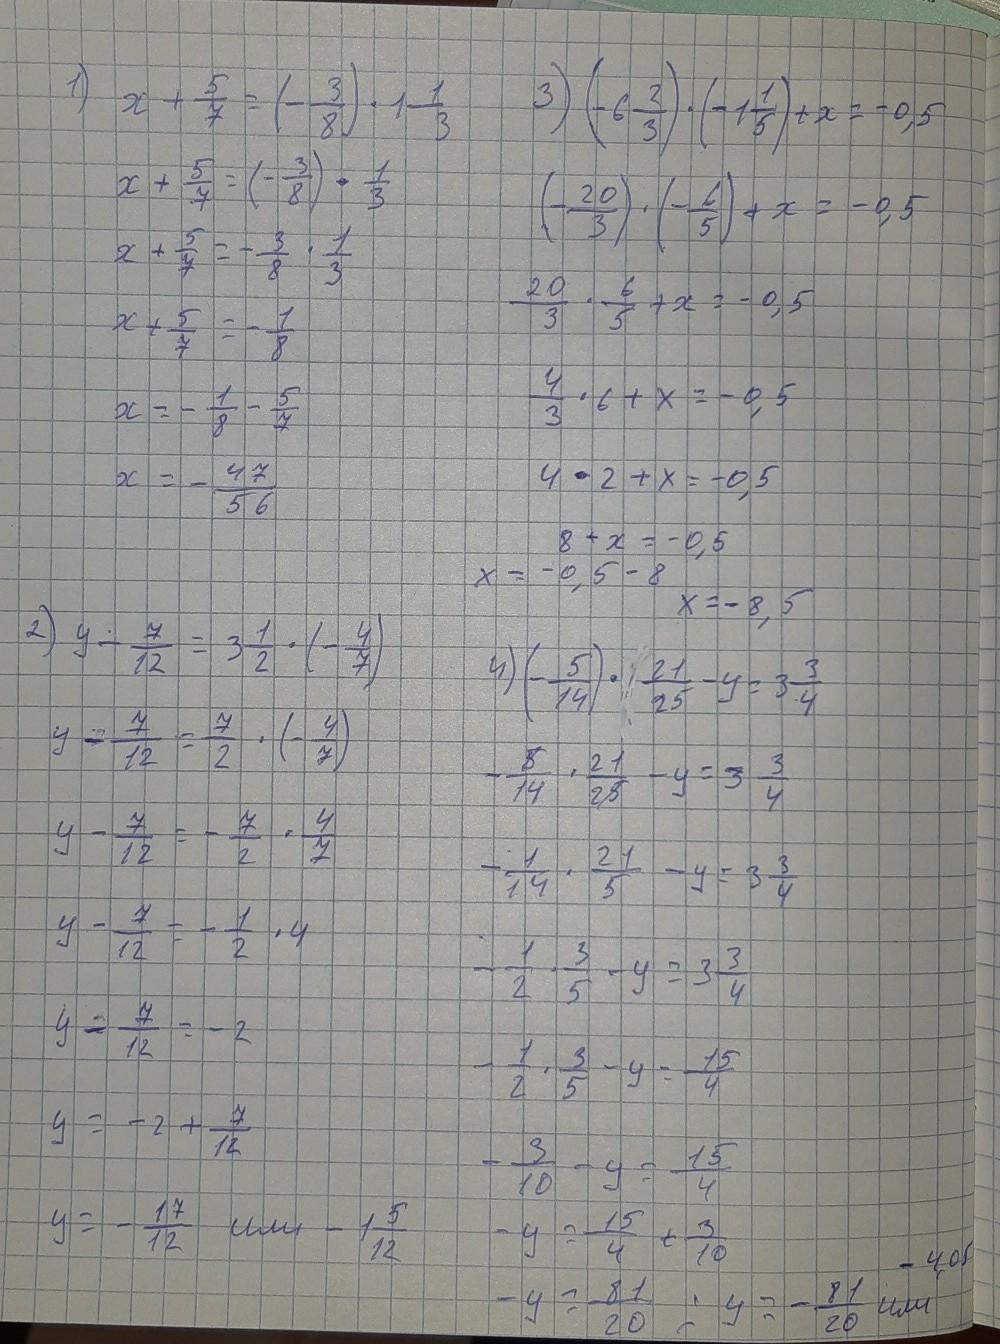 1) x + 5/7 = (-3/8) · 1 1/3
x + 5/7 = (-3/8) · 1/3
x + 5/7 = -3/8 · 1/3
x + 5/7 = -1/8
x = -1/8 - 5/7
x = -47/56
2) y - 7/12 = 3 1/2 · (-4/7)
y - 7/12 = 7/2 · (-4/7)
y - 7/12 = -7/2 · 4/7
y - 7/12 = -1/2 · 4
y - 7/12 = -2
y = -2 + 7/12
y = -17/12 или -1 5/12
3) (-6 2/3) · (-1 1/5) + x = -0,5
(-20/3) · (-6/5) + x = -0,5
20/3 · 6/5 + x = -0,5
4/3 · 6 + x = -0,5
4 · 2 + x = -0,5
8 + x = -0,5
x = -0,5 - 8
x = -8,5
4) (-5/14) · 21/25 - y = 3 3/4
-5/14 · 21/25 - y = 3 3/4
-1/14 · 21/5 - y = 3 3/4
-1/2 · 3/5 - y = 3 3/4
-1/2 · 3/5 - y = 15/4
-3/10 - y = 15/4
-y = 15/4 + 3/10
-y = 81/20 ; y = -81/20 или -4,05